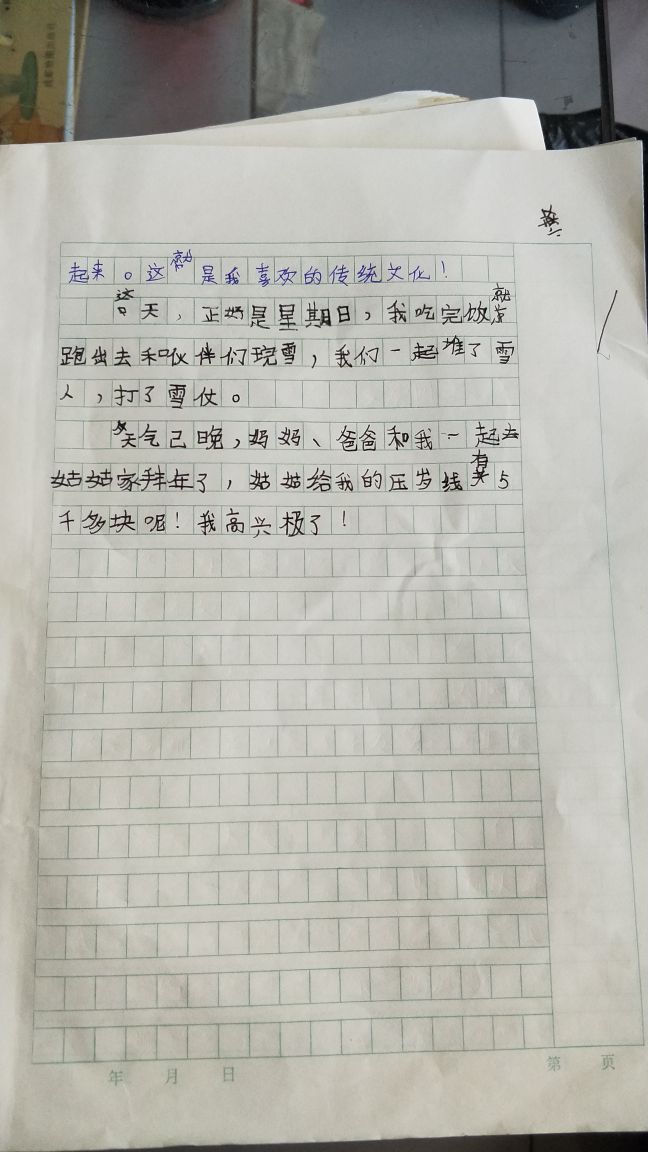 起来。这就是我喜欢的传统文化！
这天，正奶是星期日，我吃完饭就
跑出去和伙伴们玩雪，我们一起堆了雪
人，打了雪仗。
天气已晚，妈妈、爸爸和我一起去
姑姑家拜年了，姑姑给我的压岁线有5
千多块呢！我高兴极了！
年 月 日
第 页